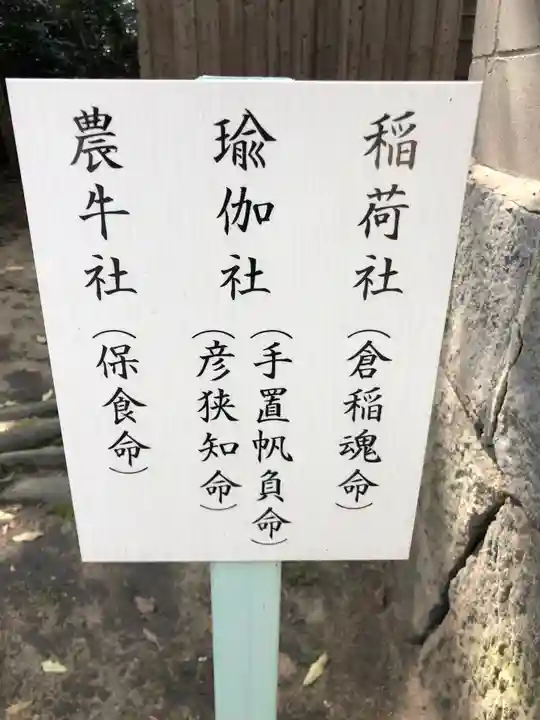 稲荷社(倉稲魂命)
瑜伽社(手置帆負命)
(彦狭知命)
農牛社(保食命)